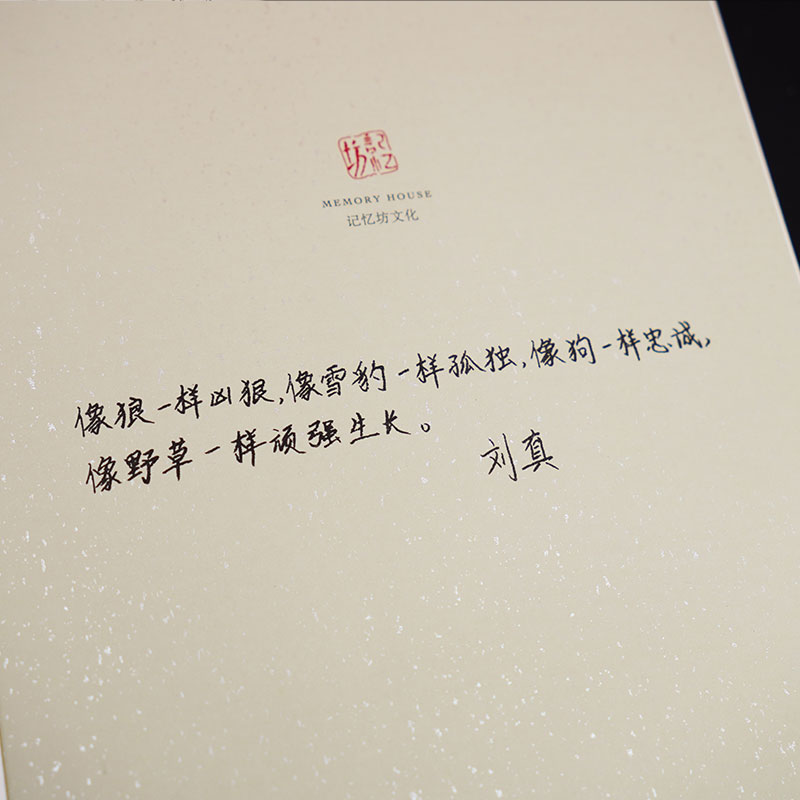 記忆坊
MEMORY HOUSE
记忆坊文化
像狼一样凶狠,像雪豹一样孤独,像狗一样忠诚,
像野草一样顽强生长。
刘真